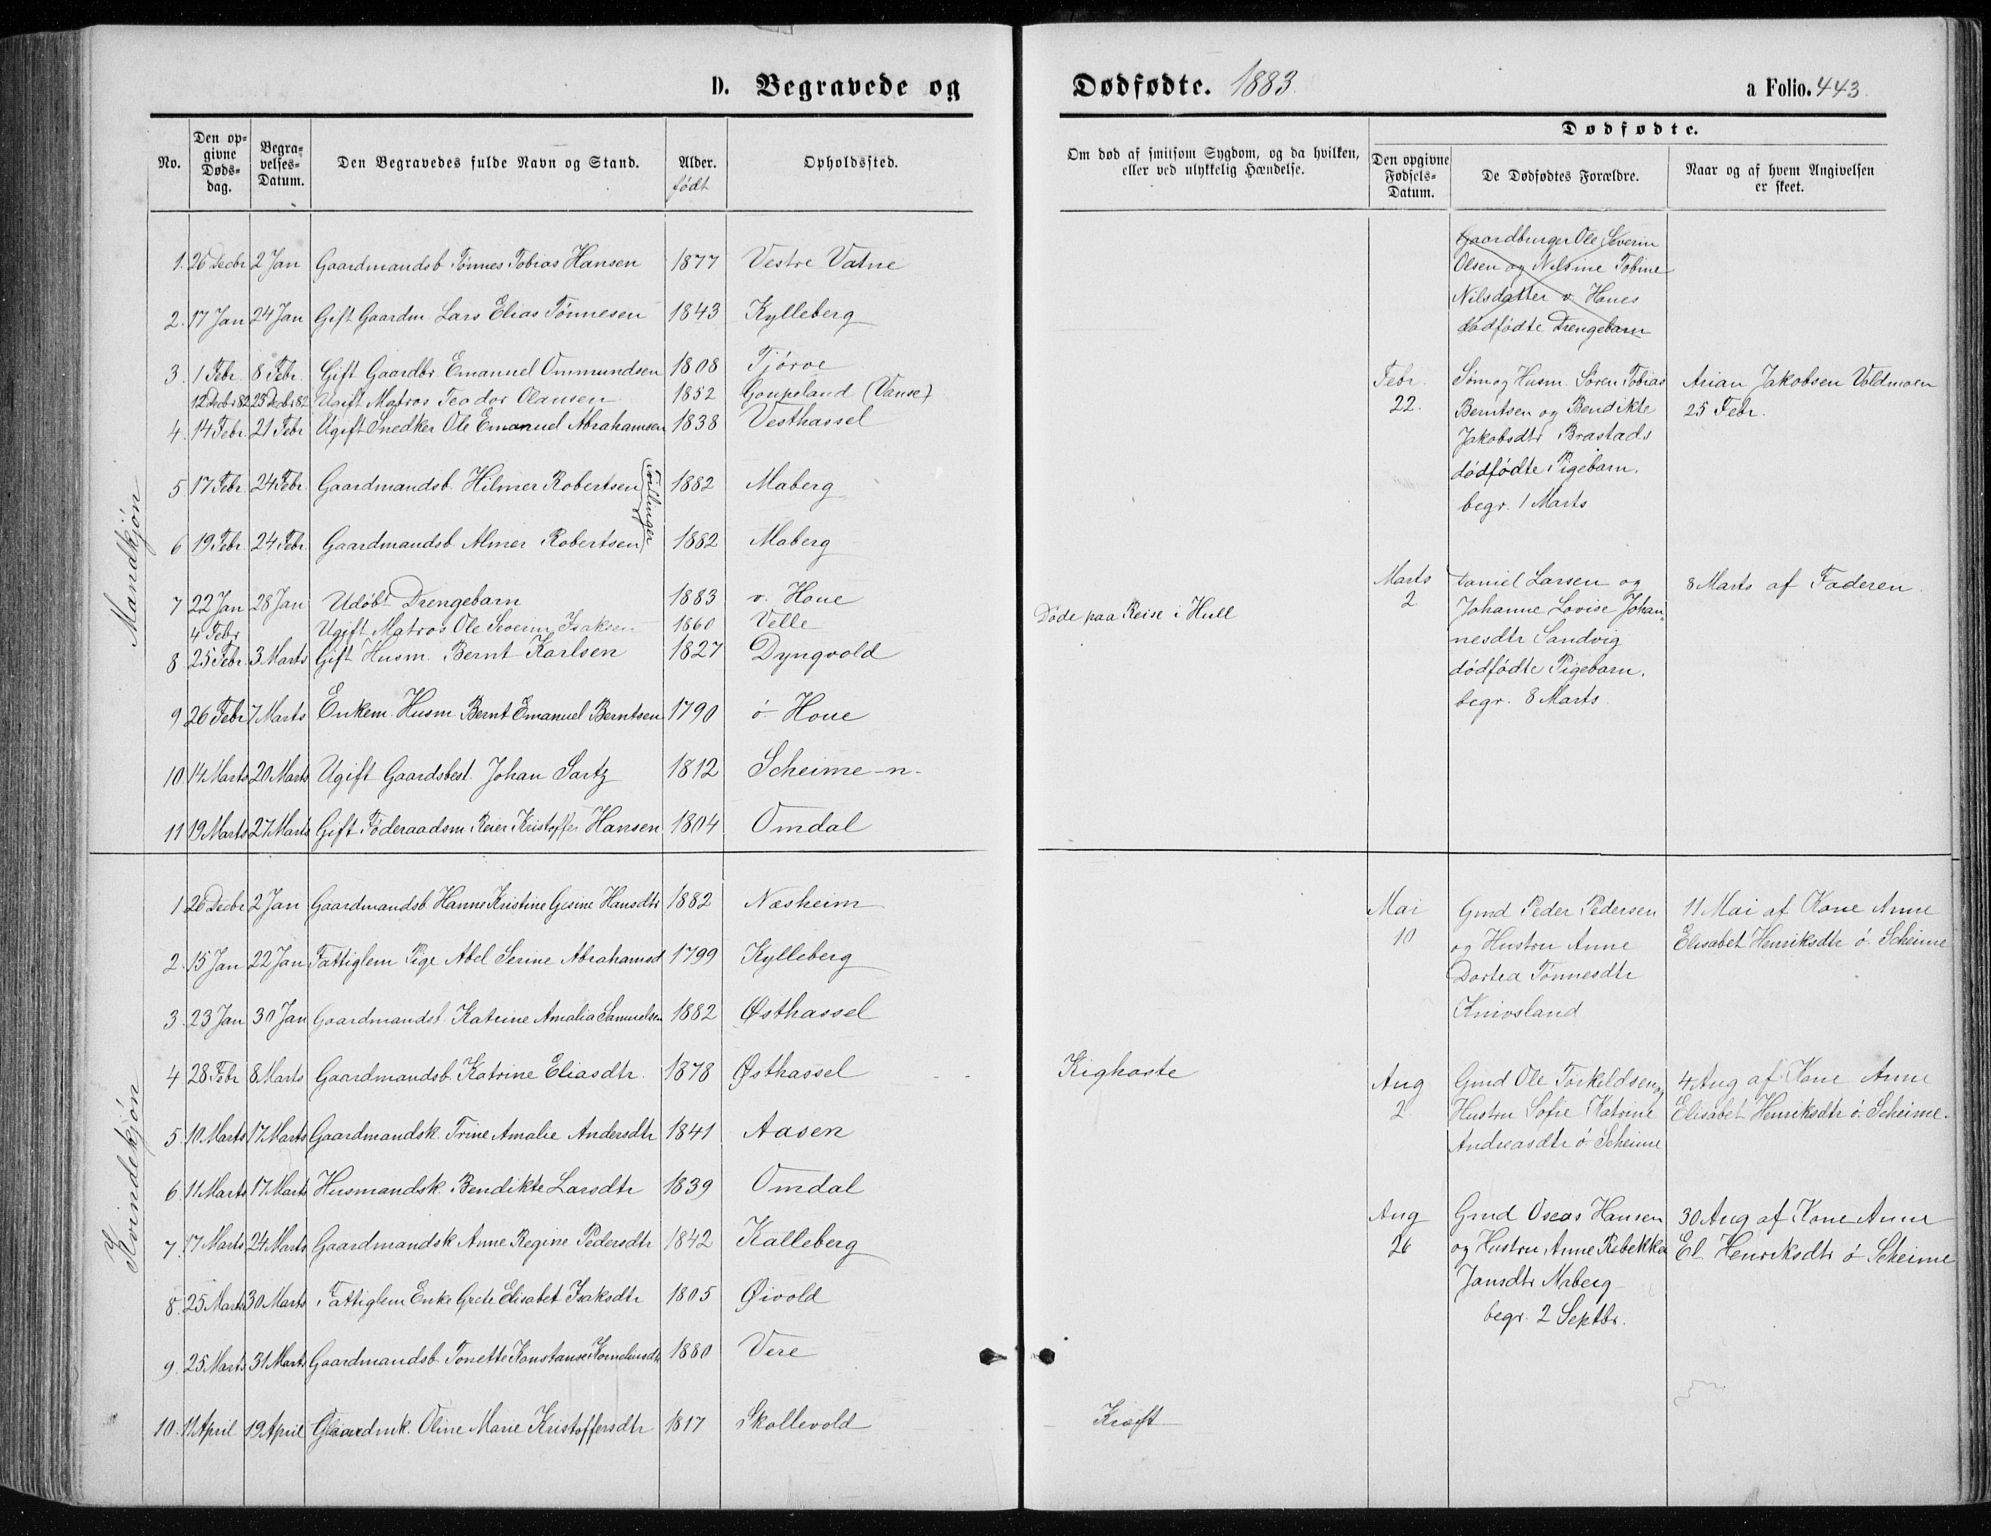 D. Begravede og Dødfødte. 1883. a Folio. 443.
No.
Den op-
givne
Døds-
dag.
Begra-
velses-
Datum.
Den Begravedes fulde Navn og Stand.
Alder.
født
Opholdssted.
Om død af smitsom Sygdom, og da hvilken,
eller ved ulykkelig Hændelse.
Dødfødte.
Den opgivne
Fødsels-
Datum.
De Dødfødtes Forældre.
Naar og af hvem Angivelsen
er skeet.
Mandkjøn
1. 26 Decbr 2 Jan Gaardmandsb. Tønnes Tobias Hansen 1877 Vestre Vatne
2. 17 Jan 24 Jan Gift Gaardm. Lars Elias Tønnesen 1843 Kylleberg
3. 1 Febr. 8 Febr. Gift Gaardbr. Emanuel Ommundsen 1808 Tjørve
12 Decbr 82 25 Decbr 82 Ugift Matros Teodor Olausen 1852 Goupsland (Vanse)
4. 14 Febr. 21 Febr Ugift Snedker Ole Emanuel Abrahamsen 1838 Vesthassel
5 17 Febr 24 Febr. Gaardmandsb. Hilmer Robertsen 1882 Maberg
Tvillinger
6 19 Febr. 24 Febr. Gaardmandsb Almer Robertsen 1882 Maberg
7 22 Jan 28 Jan Udøbt Drengebarn 1883 v. Houe
4 Febr Ugift Matros Ole Severin Isaksen 1860 Velle Døde paa Reise i Hull
8 25 Febr. 3 Marts Gift Husm. Bernt Karlsen 1827 Dyngvold
9 26 Febr 7 Marts Enkem. Husm. Bernt Emanuel Berntsen 1790 ø. Houe
10. 14 Marts 20 Marts Ugift Gaardsbest. Johan Sartz 1812 Scheime -n-
11 19 Marts 27 Marts Gift Føderaadsm. Reier Kristoffer Hansen 1804 Omdal
Gaardbruger Ole Severin
Olsen og Nilsine Tobine
Nilsdatter v. Houes
dødfødte Drengebarn
Febr.
22.
Søm og Husm. Søren Tobias
Berntsen og Bendikte
Jakobsdtr Brastads
dødfødte Pigebarn.
begr. 1 Marts
Arian Jakobsen Voldmoen
25 Febr.
Marts
2
Daniel Larsen og
Johanne Lovise Johan-
nesdtr Sandvig
dødfødte Pigebarn.
begr. 8 Marts.
8 Marts af Faderen.
Kvindekjøn
1 26 Decbr 2 Jan Gaardmandsb. Hanne Kristine Gesine Hansdtr 1882 Næsheim
2. 15 Jan 22 Jan Fattiglem Pige Abel Serine Abrahamsd 1799 Kylleberg
3. 23 Jan 30 Jan Gaardmandsb. Katrine Amalia Samuelsen 1882 Østhassel
4 28 Febr 8 Marts Gaardmandsb. Katrine Eliasdtr. 1878 Østhassel Kighoste
5. 10 Marts 17 Marts Gaardmandsk. Trine Amalie Andersdtr 1841 Aasen
6. 11 Marts 17 Marts Husmandsk. Bendikte Larsdtr 1839 Omdal
7. 17 Marts 24 Marts Gaardmandsk Anne Regine Pedersdtr 1842 Kalleberg
8. 25 Marts 30 Marts Fattiglem Enke Grete Elisabet Isaksdtr 1805 Øivold
9. 25 Marts 31 Marts Gaardmandsb. Tonette Konstanse Korneliusdtr 1880 Vere
10. 11 April 19 April Gaardmk. Oline Marie Kristoffersdtr 1817 Skollevold Kræft
Mai
10
Gmd Peder Pedersen
og Hustru Anne
Dortea Tønnesdtr
Knivsland
11 Mai af Kone Anne
Elisabet Henriksdtr ø. Scheime
Aug
2.
Gmd Ole Torkildsen og
Hustru Sofie Katrine
Andreasdtr ø. Scheime
4 Aug af Kone Anne
Elisabet Henriksdtr ø. Scheime.
Aug
26
Gmd Oseas Hansen
og Hustru Anne Rebekka
Jansdtr Maberg
begr. 2 Septbr.
30 Aug af Kone Anne
El. Henriksdtr ø Scheime